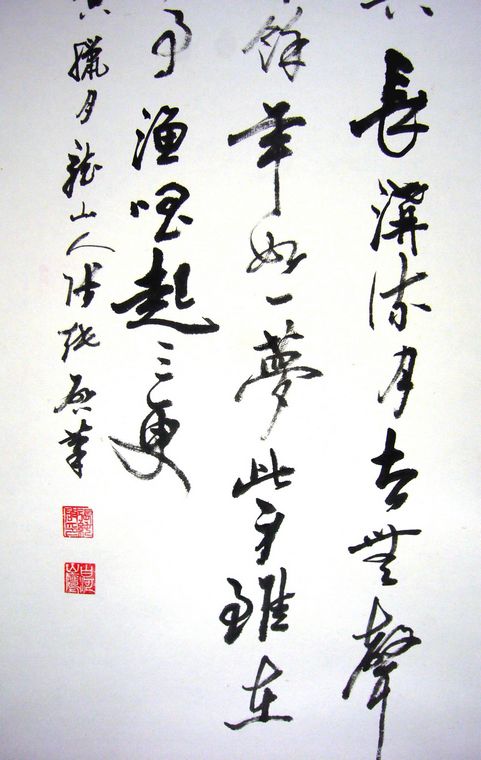 長溝流月去無聲
餘年如一夢此身雖在
事漁唱起三更
臘月龍山人張筆